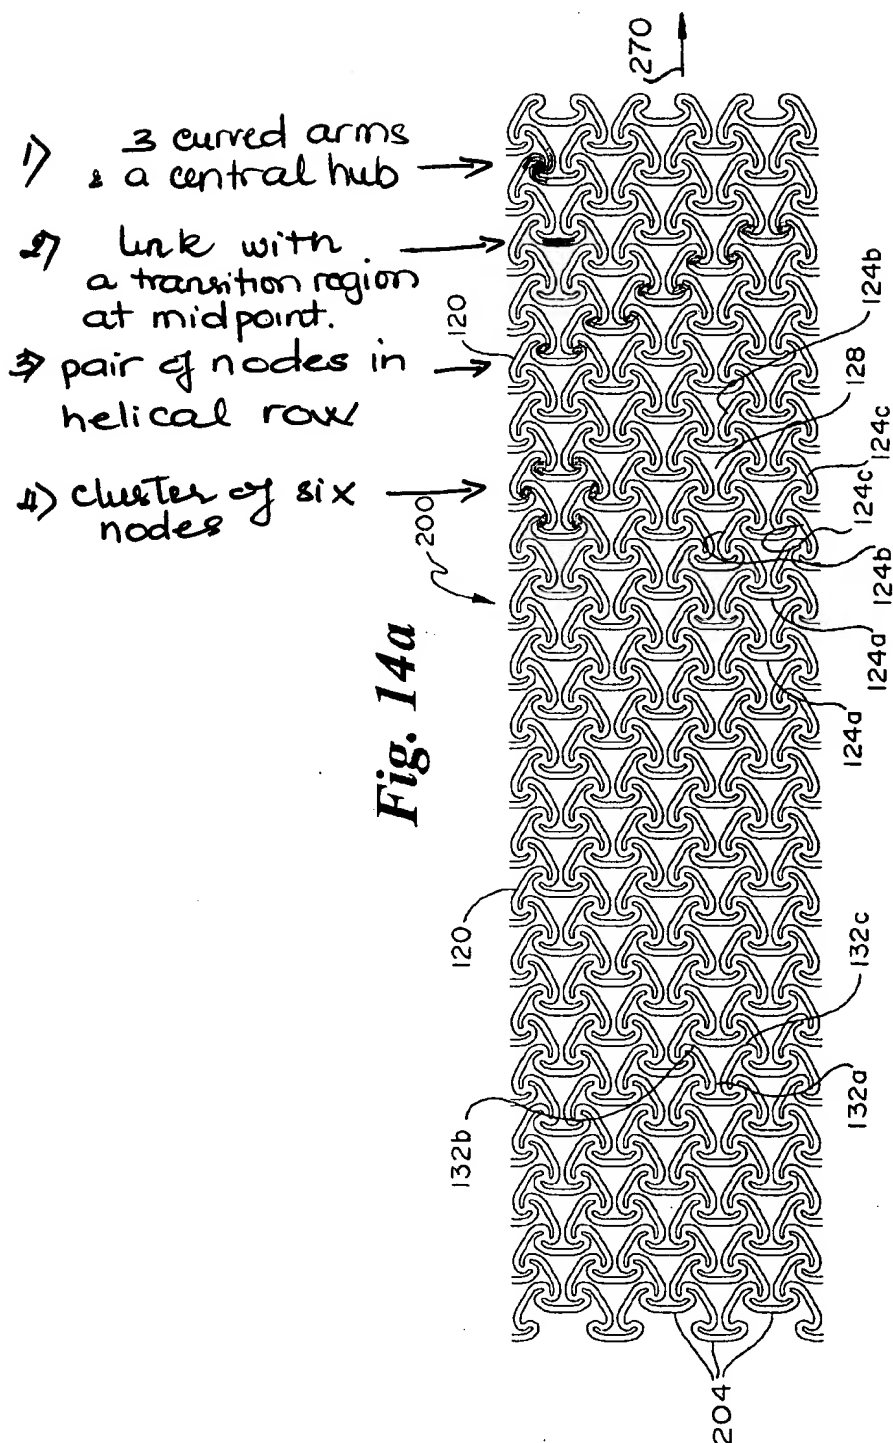 270
1) 3 curved arms
& a central hub
2) link with
a transition region
at midpoint.
3) pair of nodes in
helical row
4) cluster of six
nodes
120
124b
128
124c
124c
124b
124a
124a
200
Fig. 14a
120
132c
132a
132b
204